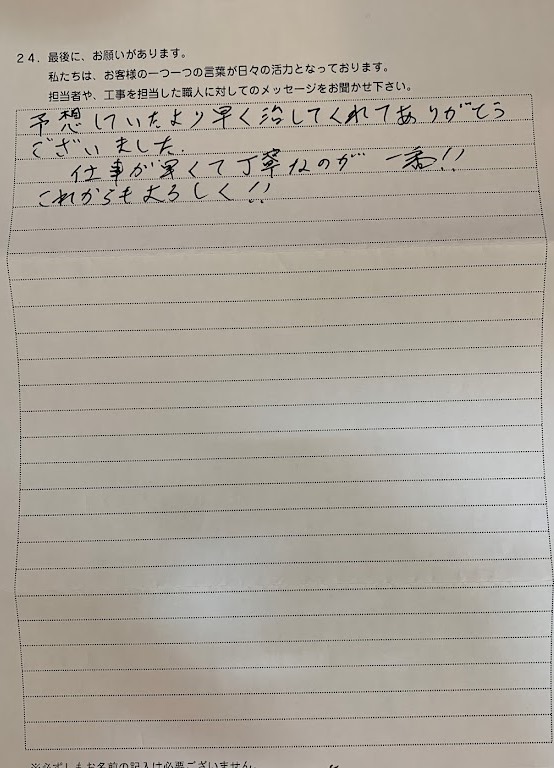 24. 最後に、お願いがあります。
私たちは、お客様の一つ一つの言葉が日々の活力となっております。
担当者や、工事を担当した職人に対してのメッセージをお聞かせ下さい。
予想していたより早く治してくれてありがとう
ございました.
仕事が早くて丁寧なのが 一番!!
これからもよろしく!!
※必ずしもお名前の記入は必要ございません。